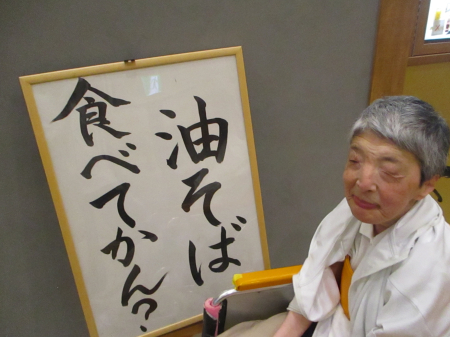 油そば
食べてかん?